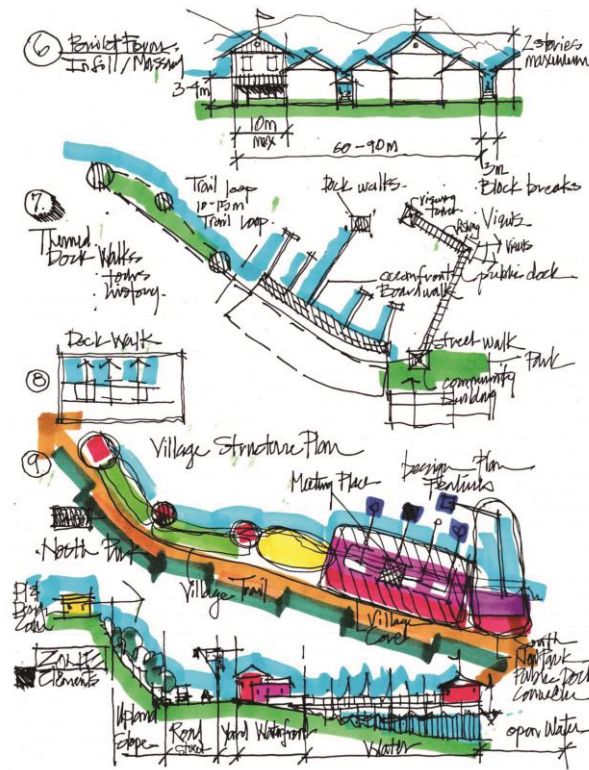 6 Built Form
Infill/Massing
2 stories
maximum
3-4m
10m
max
60-90m
3m
Block breaks
7
Themed
Dock Walks
tours
history
Trail loop
10-15m
Trail loop
Dock walks
viewing
tower
Views
Views
public dock
oceanfront
Boardwalk
street walk
Park
community
building
Dock Walk
8
9
Village Structure Plan
Meeting Place
Design Plan
Features
North Park
Village Trail
Village
Cove
South
Public Dock
Connector
Zone
Elements
Upland
Slope
Road
Yard
Waterfront
Water
open Water